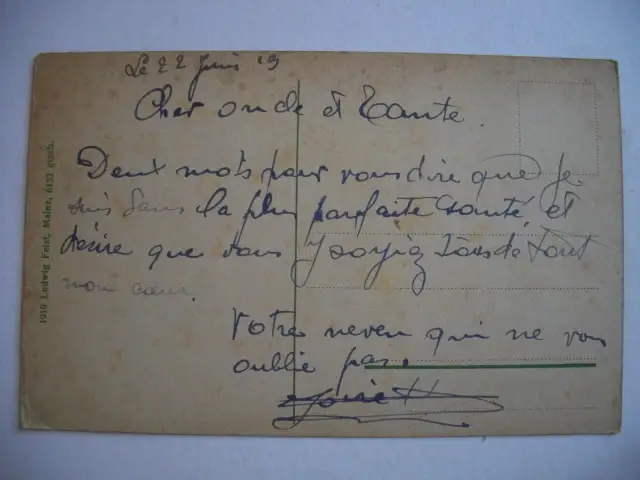 Le 22 Juin 19
Cher oncle et Tante.
Deux mots pour vous dire que je
suis dans la plus parfaite santé et
désire que vous y soyiez tous de tout
mon cœur.
Votre neveu qui ne vous
oublie pas.
1919 Ludwig Feist, Mainz, 6133 gesch.